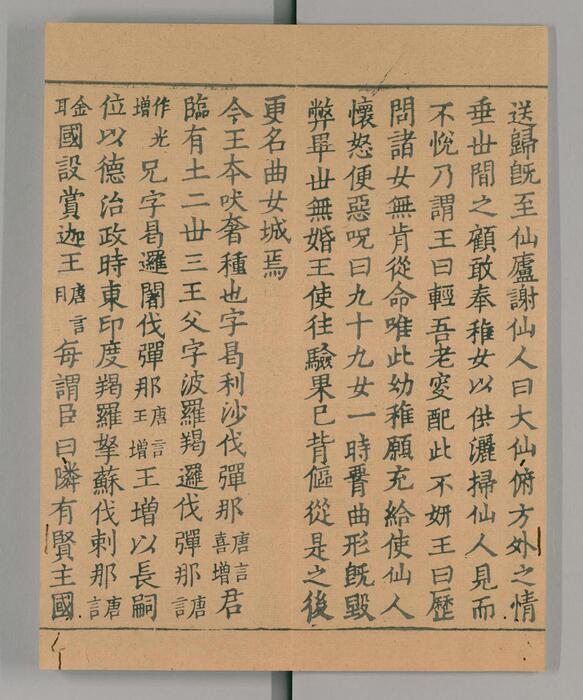 送歸旣至仙廬謝仙人曰大仙俯方外之情
垂世間之顧敢奉稚女以供灑掃仙人見而
不悅乃謂王曰輕吾老叟配此不妍王曰歷
問諸女無肯從命唯此幼稚願充給使仙人
懷怒便惡呪曰九十九女一時腰曲形旣毀
弊畢世無婚王使往驗果已背傴從是之後
更名曲女城焉
今王本吠奢種也字曷利沙伐彈那唐言喜增君
臨有土二世三王父字波羅羯邏伐彈那唐言
作光增兄字曷邏闍伐彈那唐言王增王增以長嗣
位以德治政時東印度羯羅拏蘇伐剌那唐言
金耳國設賞迦王唐言月每謂臣曰隣有賢主國